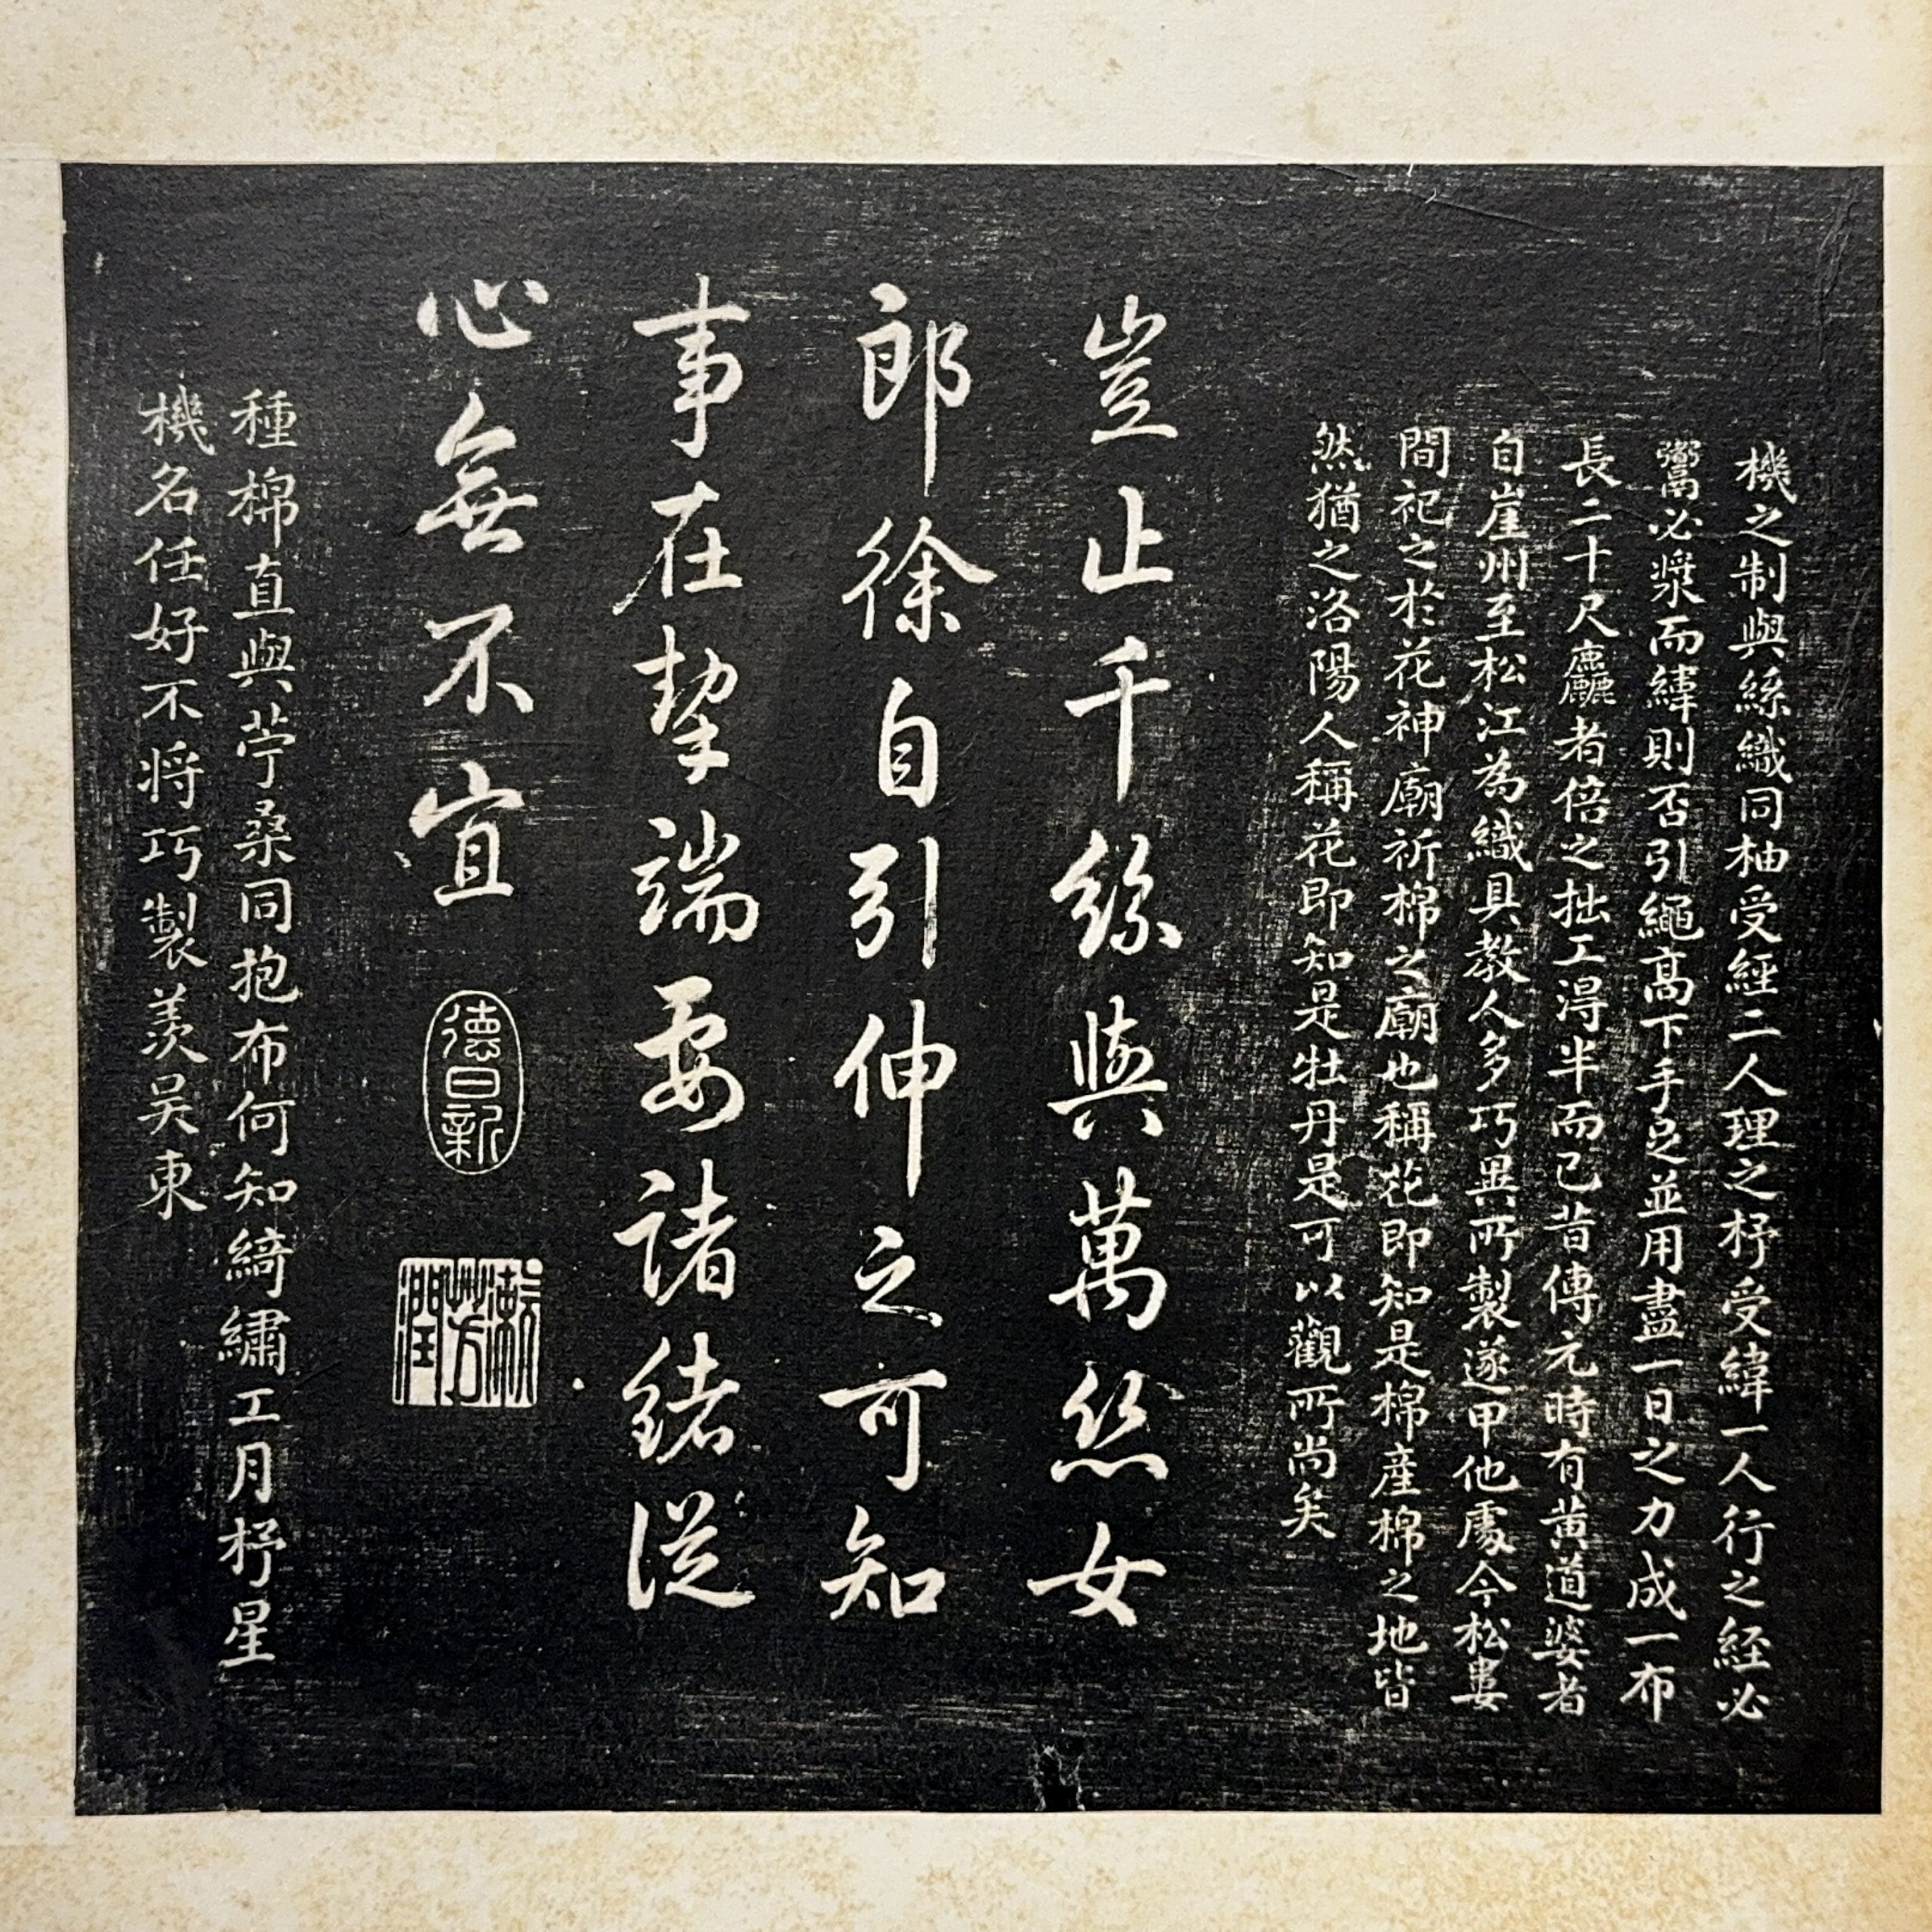 機之制與絲織同柚受經二人理之杼受緯一人行之経必
鬻必漿而緯則否引繩髙下手足並用盡一日之力成一布
長二十尺麤者倍之拙工淂半而已昔傳元時有黄道婆者
自崖州至松江為織具教人多巧異所製遂甲他處今松婁
間祀之於花神廟祈棉之廟也稱花即知是棉産棉之地皆
然猶之洛陽人稱花即知是牡丹是可以觀所尚矣
豈止千絲與萬丝女
郎徐自引伸之可知
事在挈端要諸緒從
心無不宜
德日新
漱芳潤
種棉直與苧桑同抱布何知綺繡工月杼星
機名任好不将巧製羨吴東